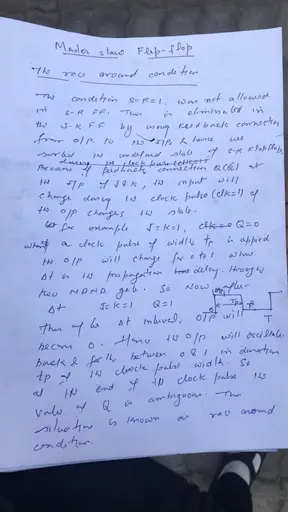 Master slave Flip-flop
The race around condition
The condition S=R=1, was not allowed
in S-R FF. This is eliminated in
the J-K FF by using feedback connection
from o/p to NS I/Ps & hence we
sorted the undefined state of S-R flipflop
Because of feedback connection Q(Q̅) at
the I/P of J&K, the input will
change during the clock pulse (clk=1) if
the o/p changes its state.
Let for example J=K=1, Q=0
when a clock pulse of width tp is applied
the o/p will change from 0 to 1 when
Δt is the propagation delay through
two NAND gate. So Now after
Δt J=K=1 Q=1
tp
T
Then after Δt interval, O/P will
become 0. Hence the o/p will oscillate
back & forth between 0 & 1 in duration
tp of the clock pulse width. So
at the end of the clock pulse the
value of Q is ambiguous. This
situation is known as race around
condition.